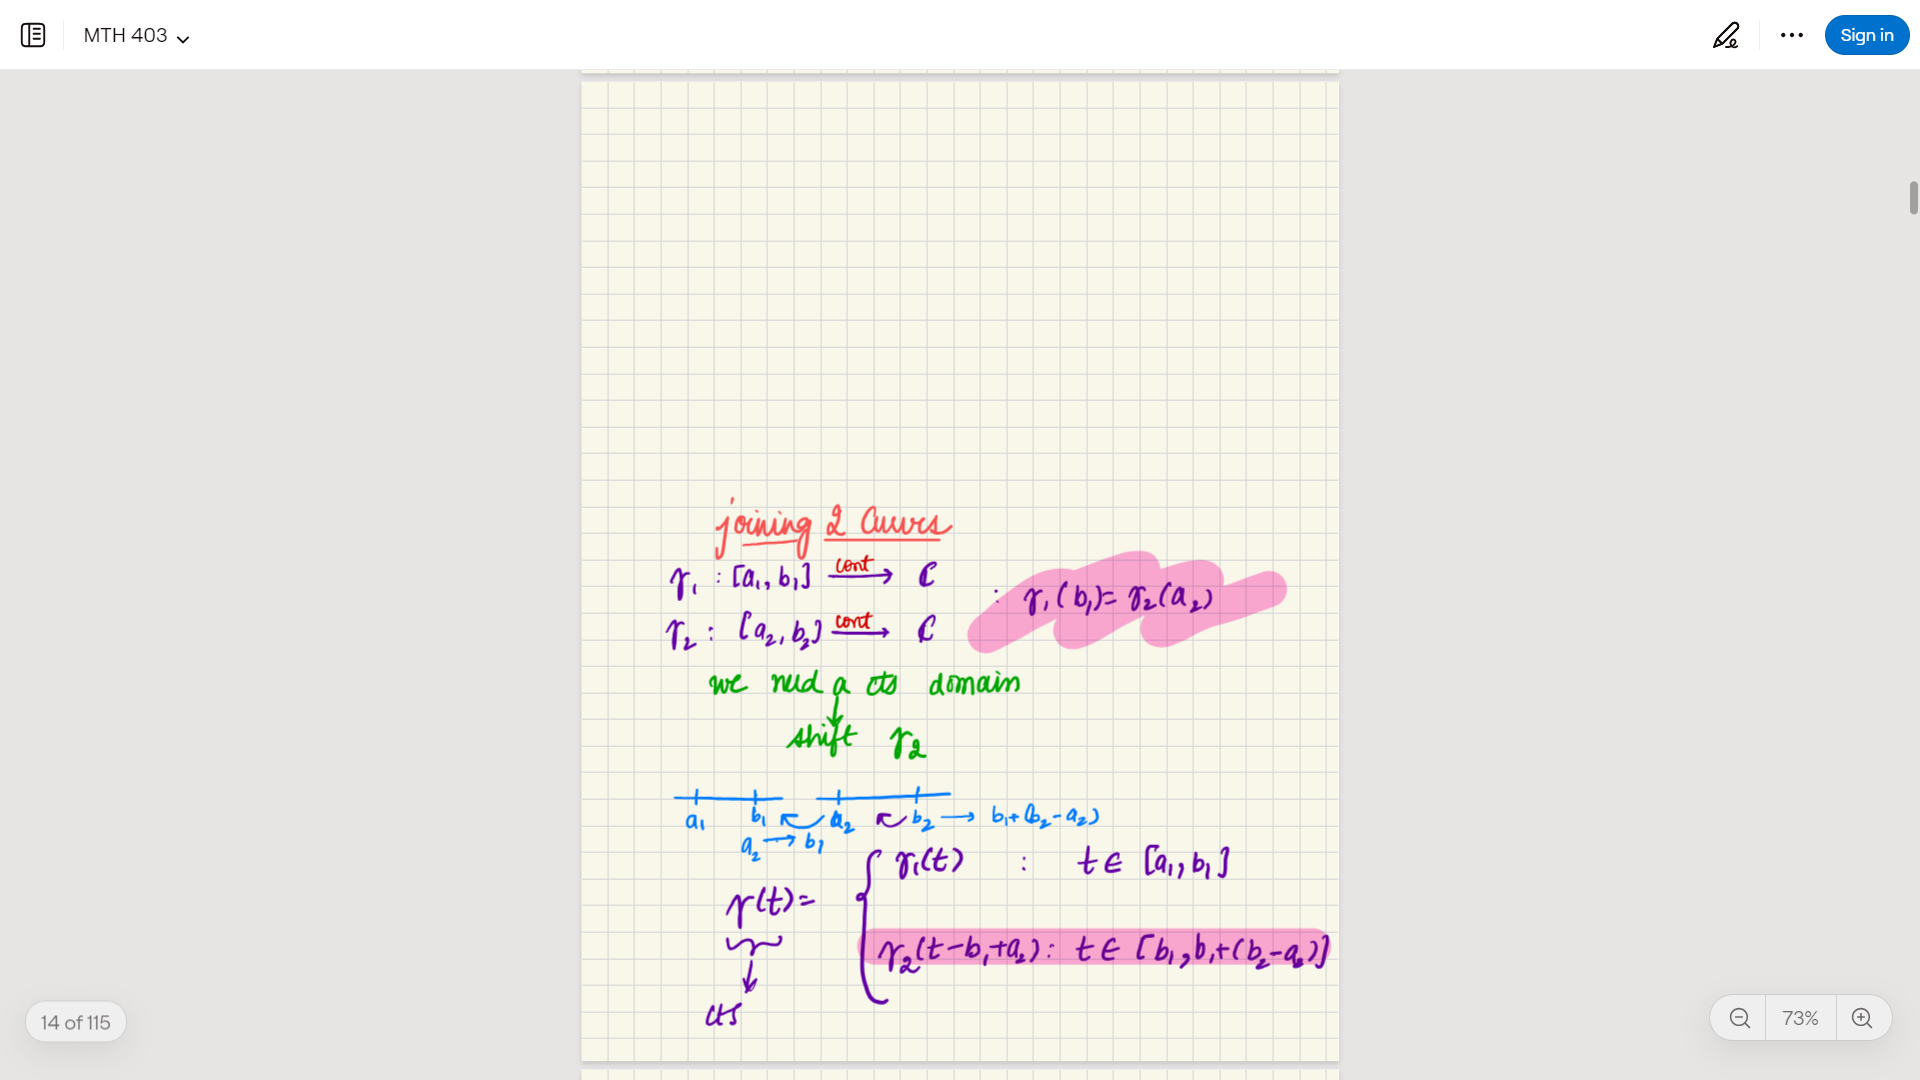 MTH 403
Sign in
joining 2 Curves
γ₁ : [a₁, b₁] cont→ ℂ
: γ₁(b₁) = γ₂(a₂)
γ₂ : [a₂, b₂] cont→ ℂ
we need a cts domain
↓
shift γ₂
a₁ b₁ a₂ b₂ → b₁+(b₂-a₂)
a₂ → b₁
γ(t) = { γ₁(t) : t ∈ [a₁, b₁]
γ₂(t-b₁+a₂) : t ∈ [b₁, b₁+(b₂-a₂)]
↓
cts
14 of 115
73%